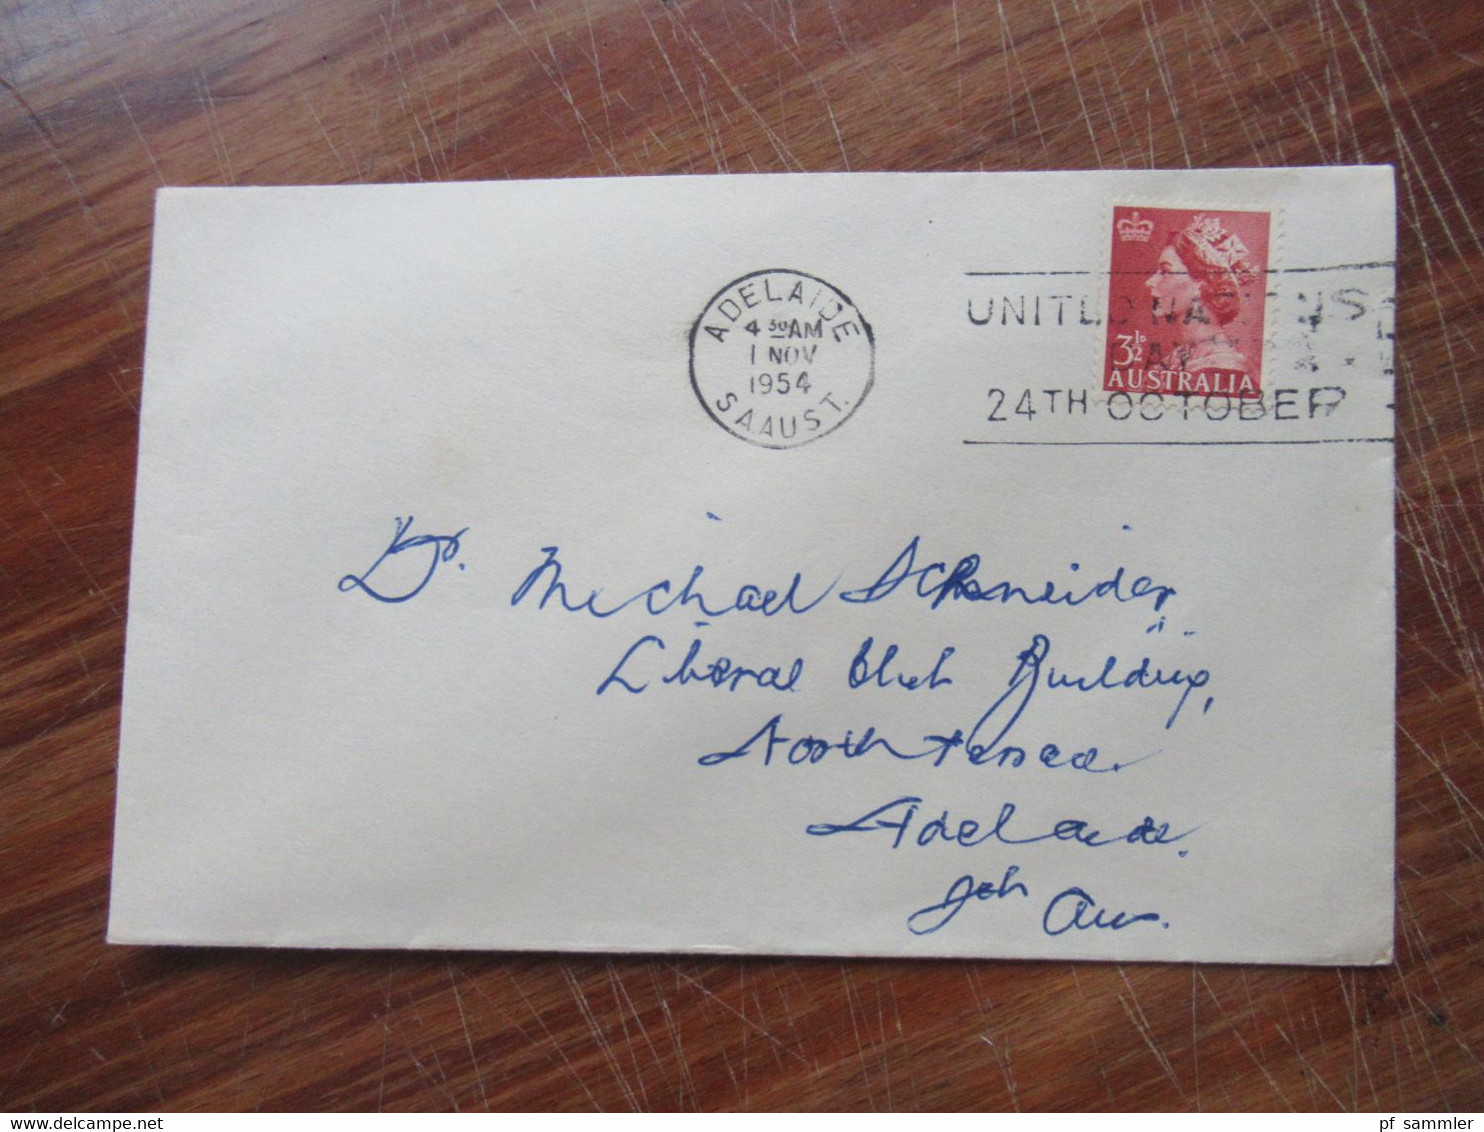 ADELAIDE
4 30 AM
1 NOV
1954
S.A. AUST.
UNITED NATIONS
DAY
24TH OCTOBER
3½D
AUSTRALIA
Dr. Michael Schneider
Liberal Club Building,
North Terrace.
Adelaide.
Sth Aus.
www.delcampe.net
pf_sammler